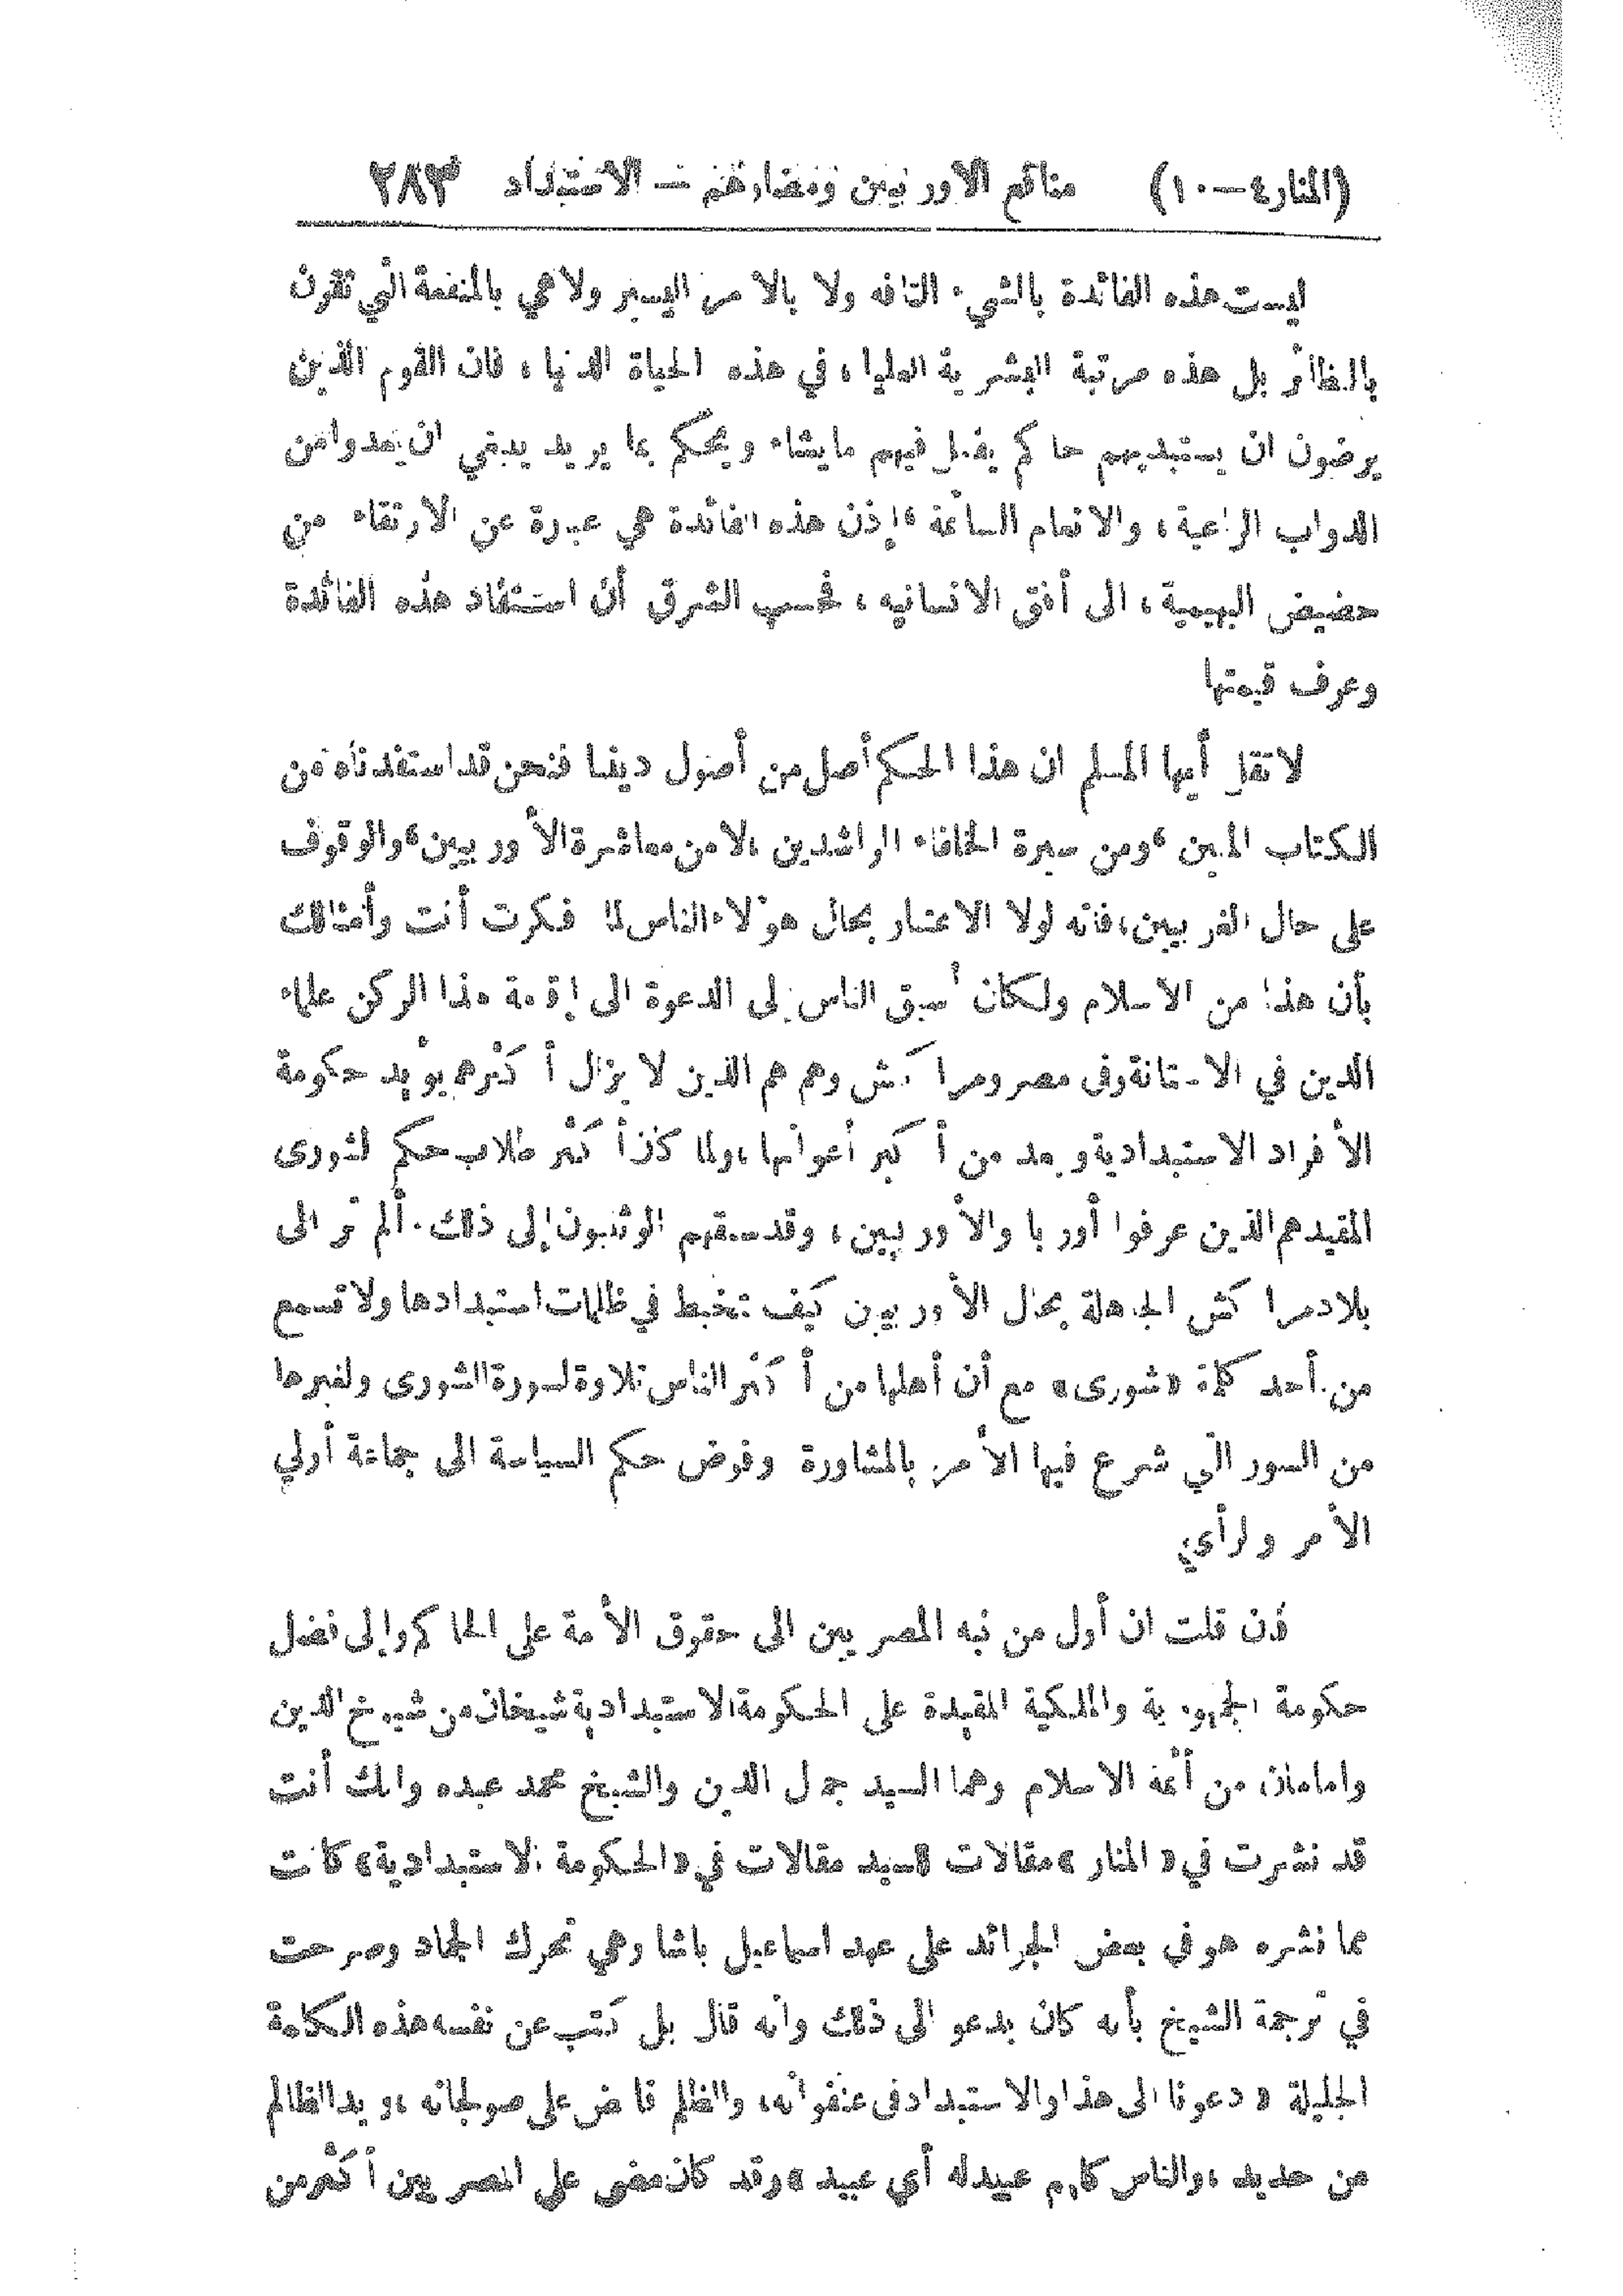 (المنار٤—١٠) منافع الاوربيين ومضارهم — الاستبداد ٢٨٣
ليست هذه الفائدة بالشيء التافه ولا بالامر اليسير ولا هي بالمنفعة التي تقرن
بالنظائر بل هذه مرتبة البشرية العليا، في هذه الحياة الدنيا، فان القوم الذين
يرضون ان يستبد بهم حاكم يفعل فيهم مايشاء ويحكم بما يريد ينبغي ان يعدوا من
الدواب الراعية، والانعام السائمة، إذن هذه الفائدة هي عبرة عن الارتقاء من
حضيض البهيمية، الى أفق الانسانيه، فحسب الشرق أن استفاد هذه الفائدة
وعرف قيمتها
لا تقل أيها المسلم ان هذا الحكم أصل من أصول ديننا فنحن قد استفدناه من
الكتاب المبين، ومن سيرة الخلفاء الراشدين، لا من معاشرة الأوربيين، والوقوف
على حال الغربيين، فانه لولا الاعتبار بحال هؤلاء الناس لما فكرت أنت وأمثالك
بأن هذا من الاسلام ولكان أسبق الناس إلى الدعوة الى إقامة هذا الركن علماء
الدين في الاستانة وفى مصر ومراكش وهم هم الذين لا يزال أكثرهم يؤيد حكومة
الأفراد الاستبدادية ويعد من أكبر أعوانها، ولما كان أكثر طلاب حكم الشورى
المقيد هم الذين عرفوا أوربا والأوربيين، وقد سبقهم الوثنيون إلى ذلك. ألم تر الى
بلاد مراكش الجاهلة بحال الأوربيين كيف تتخبط في ظلمات استبدادها ولا تسمع
من أحد كلمة «شورى» مع أن أهلها من أكثر الناس تلاوة لسورة الشورى ولغيرها
من السور التي شرع فيها الأمر بالمشاورة وفوض حكم السياسة الى جماعة أولي
الأمر والرأي
فان قلت ان أول من نبه المصريين الى حقوق الأمة على الحاكم وإلى فضل
حكومة الجمهورية والملكية المقيدة على الحكومة الاستبدادية شيخان من شيوخ الدين
وامامان من أئمة الاسلام وهما السيد جمال الدين والشيخ محمد عبده وانك أنت
قد نشرت في «المنار» مقالات للسيد مقالات في «الحكومة الاستبدادية» كانت
مما نشره هو في بعض الجرائد على عهد اسماعيل باشا وهي تحرك الجماد وصرحت
في ترجمة الشيخ بأنه كان يدعو الى ذلك وانه قال بل كتب عن نفسه هذه الكلمة
الجليلة «دعونا الى هذا والاستبداد فى عنفوانه، والظلم قابض على صولجانه، ويد الظالم
من حديد، والناس كلهم عبيد له أي عبيد» وقد كان مضى على المصريين أكثر من